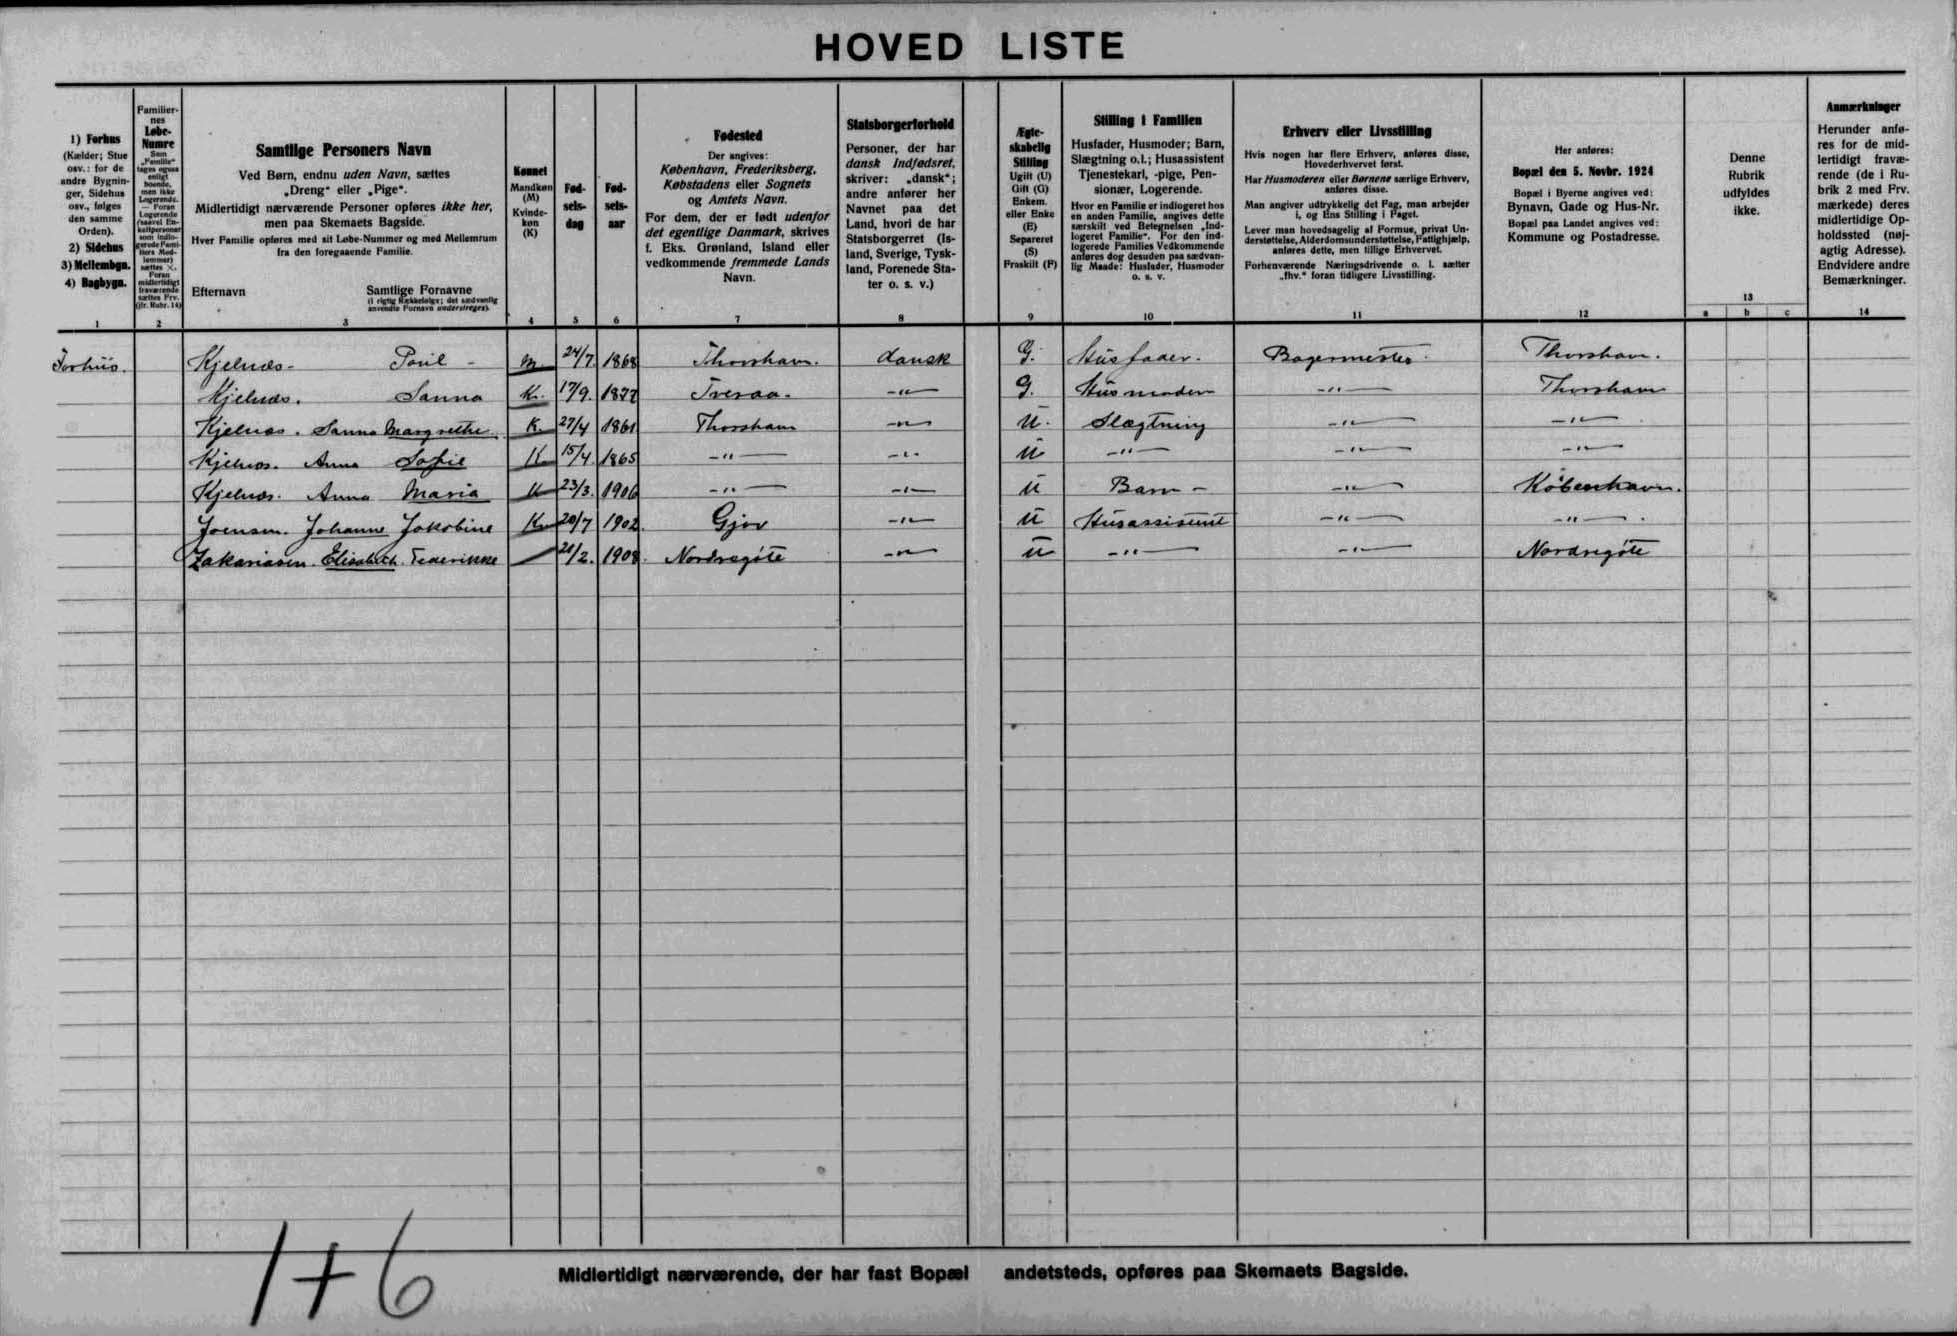 HOVED LISTE
1) Forhus
(Kælder; Stue
osv.: for de
andre Bygnin-
ger, Sidehus
osv., følges
den samme
Orden).
2) Sidehus
3) Mellembgn.
4) Bagbygn.
1
Familier-
nes
Løbe-
Numre
Som
„Familie"
tages ogsaa
enligt
boende,
men ikke
Logerende.
— Foran
Logerende
(saavel En-
keltpersoner
som indlo-
gerede Fami-
liers Med-
lemmer)
sættes ×.
Foran
midlertidigt
fraværende
sættes Frv.
(jfr. Rubr. 14)
2
Samtlige Personers Navn
Ved Børn, endnu uden Navn, sættes
„Dreng" eller „Pige".
Midlertidigt nærværende Personer opføres ikke her,
men paa Skemaets Bagside.
Hver Familie opføres med sit Løbe-Nummer og med Mellemrum
fra den foregaaende Familie.
Efternavn Samtlige Fornavne
(i rigtig Rækkefølge; det sædvanlig
anvendte Fornavn understreges).
3
Kønnet
Mandkøn
(M)
Kvinde-
køn
(K)
4
Fød-
sels-
dag
5
Fød-
sels-
aar
6
Fødested
Der angives:
København, Frederiksberg,
Købstadens eller Sognets
og Amtets Navn.
For dem, der er født udenfor
det egentlige Danmark, skrives
f. Eks. Grønland, Island eller
vedkommende fremmede Lands
Navn.
7
Statsborgerforhold
Personer, der har
dansk Indfødsret,
skriver: „dansk";
andre anfører her
Navnet paa det
Land, hvori de har
Statsborgerret (Is-
land, Sverige, Tysk-
land, Forenede Sta-
ter o. s. v.)
8
Ægte-
skabelig
Stilling
Ugift (U)
Gift (G)
Enkem.
eller Enke
(E)
Separeret
(S)
Fraskilt (F)
9
Stilling i Familien
Husfader, Husmoder; Barn,
Slægtning o.l.; Husassistent
Tjenestekarl, -pige, Pen-
sionær, Logerende.
Hvor en Familie er indlogeret hos
en anden Familie, angives dette
særskilt ved Betegnelsen „Ind-
logeret Familie". For den ind-
logerede Families Vedkommende
anføres dog desuden paa sædvan-
lig Maade: Husfader, Husmoder
o. s. v.
10
Erhverv eller Livsstilling
Hvis nogen har flere Erhverv, anføres disse,
Hovederhvervet først.
Har Husmoderen eller Børnene særlige Erhverv,
anføres disse.
Man angiver udtrykkelig det Fag, man arbejder
i, og Ens Stilling i Faget.
Lever man hovedsagelig af Formue, privat Un-
derstøttelse, Alderdomsunderstøttelse, Fattighjælp,
anføres dette, men tillige Erhvervet.
Forhenværende Næringsdrivende o. l. sætter
„fhv." foran tidligere Livsstilling.
11
Her anføres:
Bopæl den 5. Novbr. 1924
Bopæl i Byerne angives ved:
Bynavn, Gade og Hus-Nr.
Bopæl paa Landet angives ved:
Kommune og Postadresse.
12
Denne
Rubrik
udfyldes
ikke.
13
a b c
Anmærkninger
Herunder anfø-
res for de mid-
lertidigt fravæ-
rende (de i Ru-
brik 2 med Frv.
mærkede) deres
midlertidige Op-
holdssted (nøj-
agtig Adresse).
Endvidere andre
Bemærkninger.
14
Forhüs. Kjelnæs - Poul - M. 24/7. 1868 Thorshavn. dansk G. Husfader. Bagermester. Thorshavn.
Kjelnæs. Sanna K. 17/9. 1877 Tveraa. -"- G. Husmoder -"- Thorshavn
Kjelnæs. Sanna Margrethe K 27/4 1861 Thorshavn -"- U. Slægtning -"- -"-
Kjelnæs. Anna Sofie K 15/4 1865 -"- -"- U -"- -"- -"-
Kjelnæs. Anna Maria K 23/3. 1906 -"- -"- U Barn - -"- København.
Joensen. Johanne Jakobine K 20/7 1902. Gjov -"- U Husassistent -"- -"-
Zakariasen. Elisabeth. Federikke 21/2. 1908. Nordregöte -"- U -"- -"- Nordregöte
1+6
Midlertidigt nærværende, der har fast Bopæl andetsteds, opføres paa Skemaets Bagside.